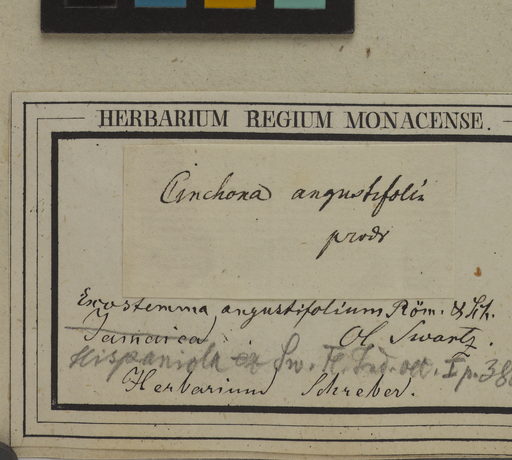 HERBARIUM REGIUM MONACENSE.
Cinchona angustifolia
prodr
Exostemma angustifolium Röm. & Sch.
Jamaica Ol. Swartz.
Hispaniola ex Sw. Fl. Ind. occ. I p. 38
Herbarium Schreber.